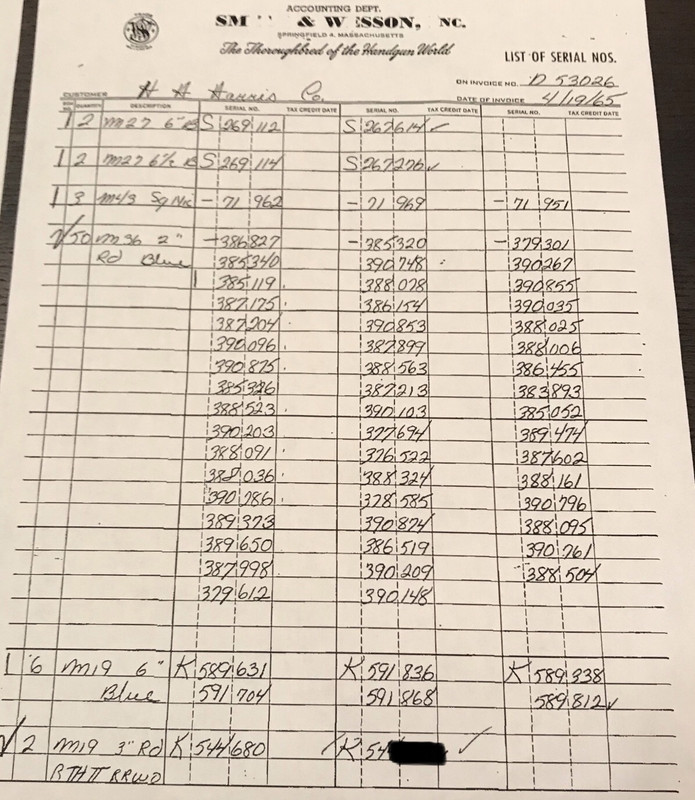 ACCOUNTING DEPT.
SM & W ESSON, NC.
SPRINGFIELD 4, MASSACHUSETTS
The Thoroughbred of the Handgun World
LIST OF SERIAL NOS.
ON INVOICE NO. D 53026
CUSTOMER H A Harris Co.
DATE OF INVOICE 4/19/65
QUANTITY DESCRIPTION SERIAL NO. TAX CREDIT DATE SERIAL NO. TAX CREDIT DATE SERIAL NO. TAX CREDIT DATE
1 2 M27 6" B S 269 112 S 267614 ✓
1 2 M27 6½ B S 269 114 S 267276 ✓
1 3 M43 Sq - 71 962 - 71 969 - 71 951
√ 50 M36 2" - 386827 - 385320 - 379301
Rd Blue 385340 390748 390267
385119 388078 390855
387175 386154 390035
387204 390853 388025
390096 387899 388006
390875 388563 386455
385326 387213 383893
388523 390103 385052
390203 377694 389474
388091 376522 387602
388036 388324 388161
390786 378585 390796
389373 390874 388095
389650 386519 390761
387998 390209 388504
379612 390148
1 6 M19 6" K 589631 K 591 836 K 589 338
Blue 591 704 591 868 589 812 ✓
√ 2 M19 3" Rd K 544680 K 54 ✓
RTH TT RRWO